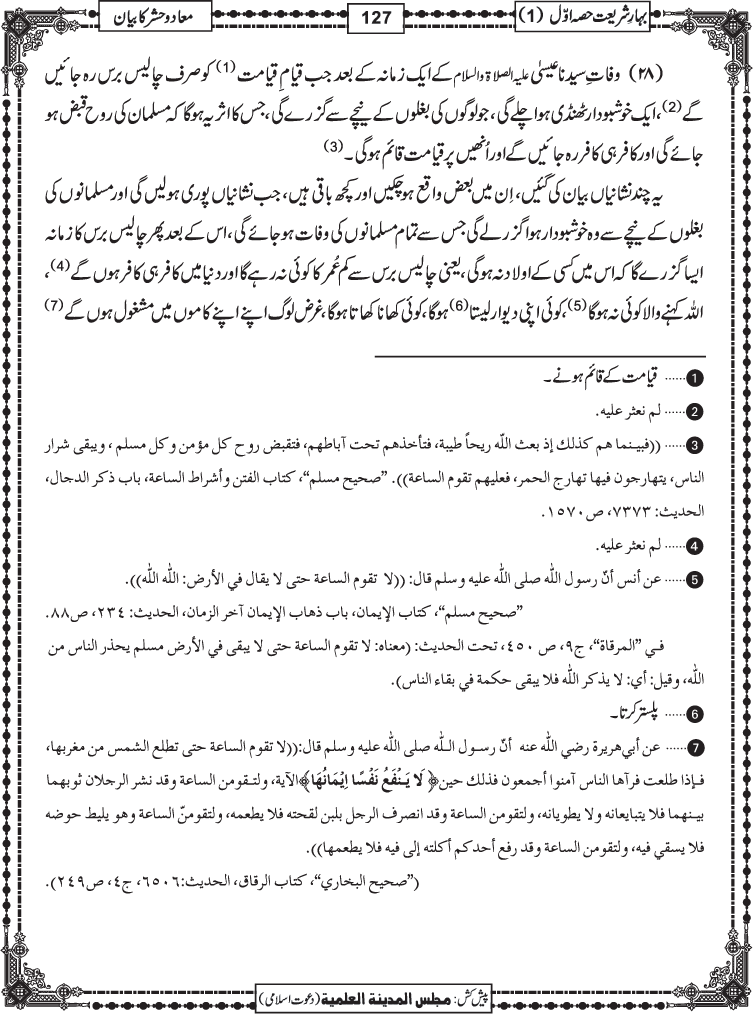 بہارِ شریعت حصہ اوّل (1)
127
معاد و حشر کا بیان
(۲۸) وفاتِ سیدنا عیسیٰ علیہ الصلاۃ والسلام کے ایک زمانہ کے بعد جب قیامِ قیامت (1) کو صرف چالیس برس رہ جائیں
گے (2)، ایک خوشبودار ٹھنڈی ہوا چلے گی، جو لوگوں کی بغلوں کے نیچے سے گزرے گی، جس کا اثر یہ ہوگا کہ مسلمان کی روح قبض ہو
جائے گی اور کافر ہی کافر رہ جائیں گے اور اُنھیں پر قیامت قائم ہوگی۔ (3)
یہ چند نشانیاں بیان کی گئیں، اِن میں بعض واقع ہوچکیں اور کچھ باقی ہیں، جب نشانیاں پوری ہولیں گی اور مسلمانوں کی
بغلوں کے نیچے سے وہ خوشبودار ہوا گزر لے گی جس سے تمام مسلمانوں کی وفات ہوجائے گی، اس کے بعد پھر چالیس برس کا زمانہ
ایسا گزرے گا کہ اس میں کسی کے اولاد نہ ہوگی، یعنی چالیس برس سے کم عُمر کا کوئی نہ رہے گا اور دنیا میں کافر ہی کافر ہوں گے (4)،
اللہ کہنے والا کوئی نہ ہوگا (5)، کوئی اپنی دیوار لیستا (6) ہوگا، کوئی کھانا کھاتا ہوگا، غرض لوگ اپنے اپنے کاموں میں مشغول ہوں گے (7)
1 ...... قیامت کے قائم ہونے۔
2 ...... لم نعثر عليه.
3 ...... ((فبينما هم كذلك إذ بعث اللّه ريحاً طيبة، فتأخذهم تحت آباطهم، فتقبض روح كل مؤمن وكل مسلم، ويبقى شرار
الناس، يتهارجون فيها تهارج الحمر، فعليهم تقوم الساعة)). ”صحيح مسلم“، كتاب الفتن وأشراط الساعة، باب ذكر الدجال،
الحديث: ٧٣٧٣، ص ١٥٧٠.
4 ...... لم نعثر عليه.
5 ...... عن أنس أنّ رسول اللّه صلى اللّه عليه وسلم قال: ((لا تقوم الساعة حتى لا يقال في الأرض: اللّه اللّه)).
”صحيح مسلم“، كتاب الإيمان، باب ذهاب الإيمان آخر الزمان، الحديث: ٢٣٤، ص٨٨.
فـي ”المرقاة“، ج٩، ص ٤٥٠، تحت الحديث: (معناه: لا تقوم الساعة حتى لا يبقى في الأرض مسلم يحذر الناس من
اللّه، وقيل: أي: لا يذكر اللّه فلا يبقى حكمة في بقاء الناس).
6 ...... پلستر کرتا۔
7 ...... عن أبي هريرة رضي اللّه عنه أنّ رسـول اللّـه صلى اللّه عليه وسلم قال:((لا تقوم الساعة حتى تطلع الشمس من مغربها،
فـإذا طلعت فرآها الناس آمنوا أجمعون فذلك حين﴿ لَا يَنْفَعُ نَفْسًا اِيْمَانُهَا﴾ الآية، ولتـقومن الساعة وقد نشر الرجلان ثوبهما
بيـنهما فلا يتبايعانه ولا يطويانه، ولتقومن الساعة وقد انصرف الرجل بلبن لقحته فلا يطعمه، ولتقومنّ الساعة وهو يليط حوضه
فلا يسقي فيه، ولتقومن الساعة وقد رفع أحدكم أكلته إلى فيه فلا يطعمها)).
(”صحيح البخاري“، كتاب الرقاق، الحديث:٦٥٠٦، ج٤، ص٢٤٩).
پیش کش: مجلس المدينة العلمية (دعوت اسلامی)